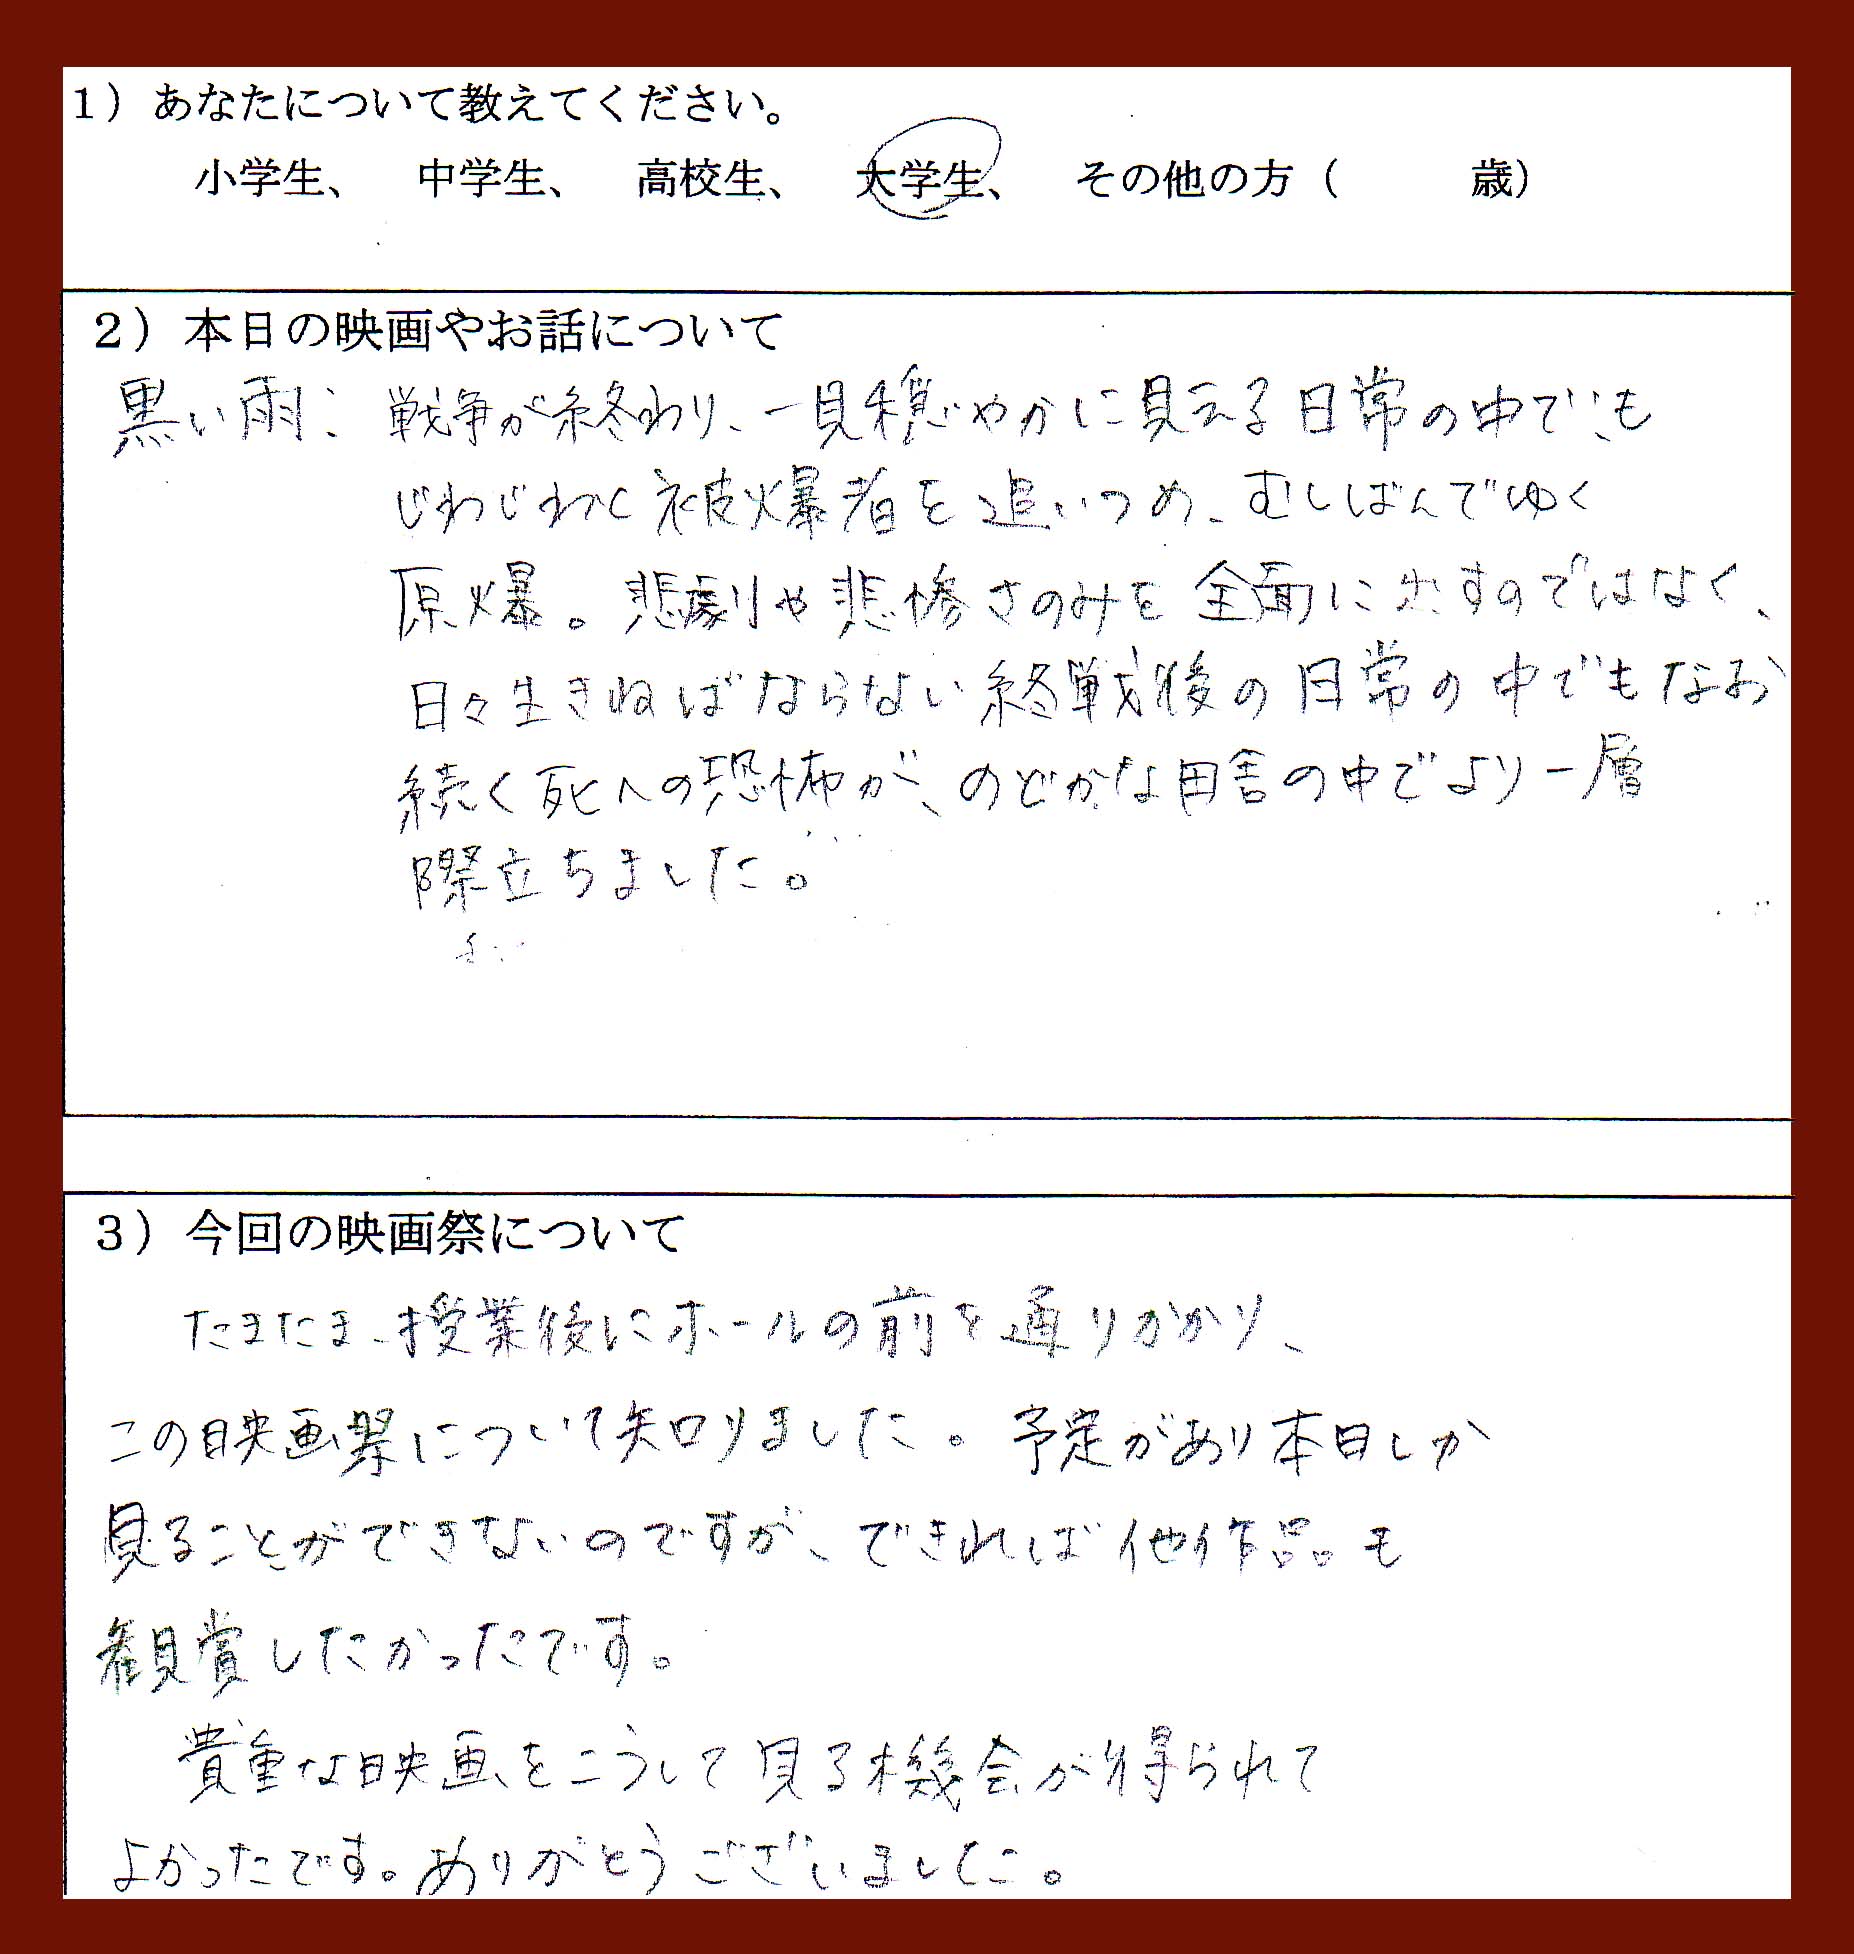 1）あなたについて教えてください。
小学生、　中学生、　高校生、　大学生、　その他の方（　　　歳）
2）本日の映画やお話について
黒い雨：戦争が終わり、一見穏やかに見える日常の中で、も
じわじわと被爆者を追いつめ、むしばんでゆく
原爆。悲劇や悲惨さのみを全面に出すのではなく、
日々生きねばならない終戦後の日常の中でもなお
続く死への恐怖が、のどかな田舎の中でより一層
際立ちました。
3）今回の映画祭について
たまたま、授業後にホールの前を通りかかり、
この映画祭について知りました。予定があり本日しか
見ることができないのですが、できれば他作品も
観賞したかったです。
貴重な映画をこうして見る機会が得られて
よかったです。ありがとうございました。